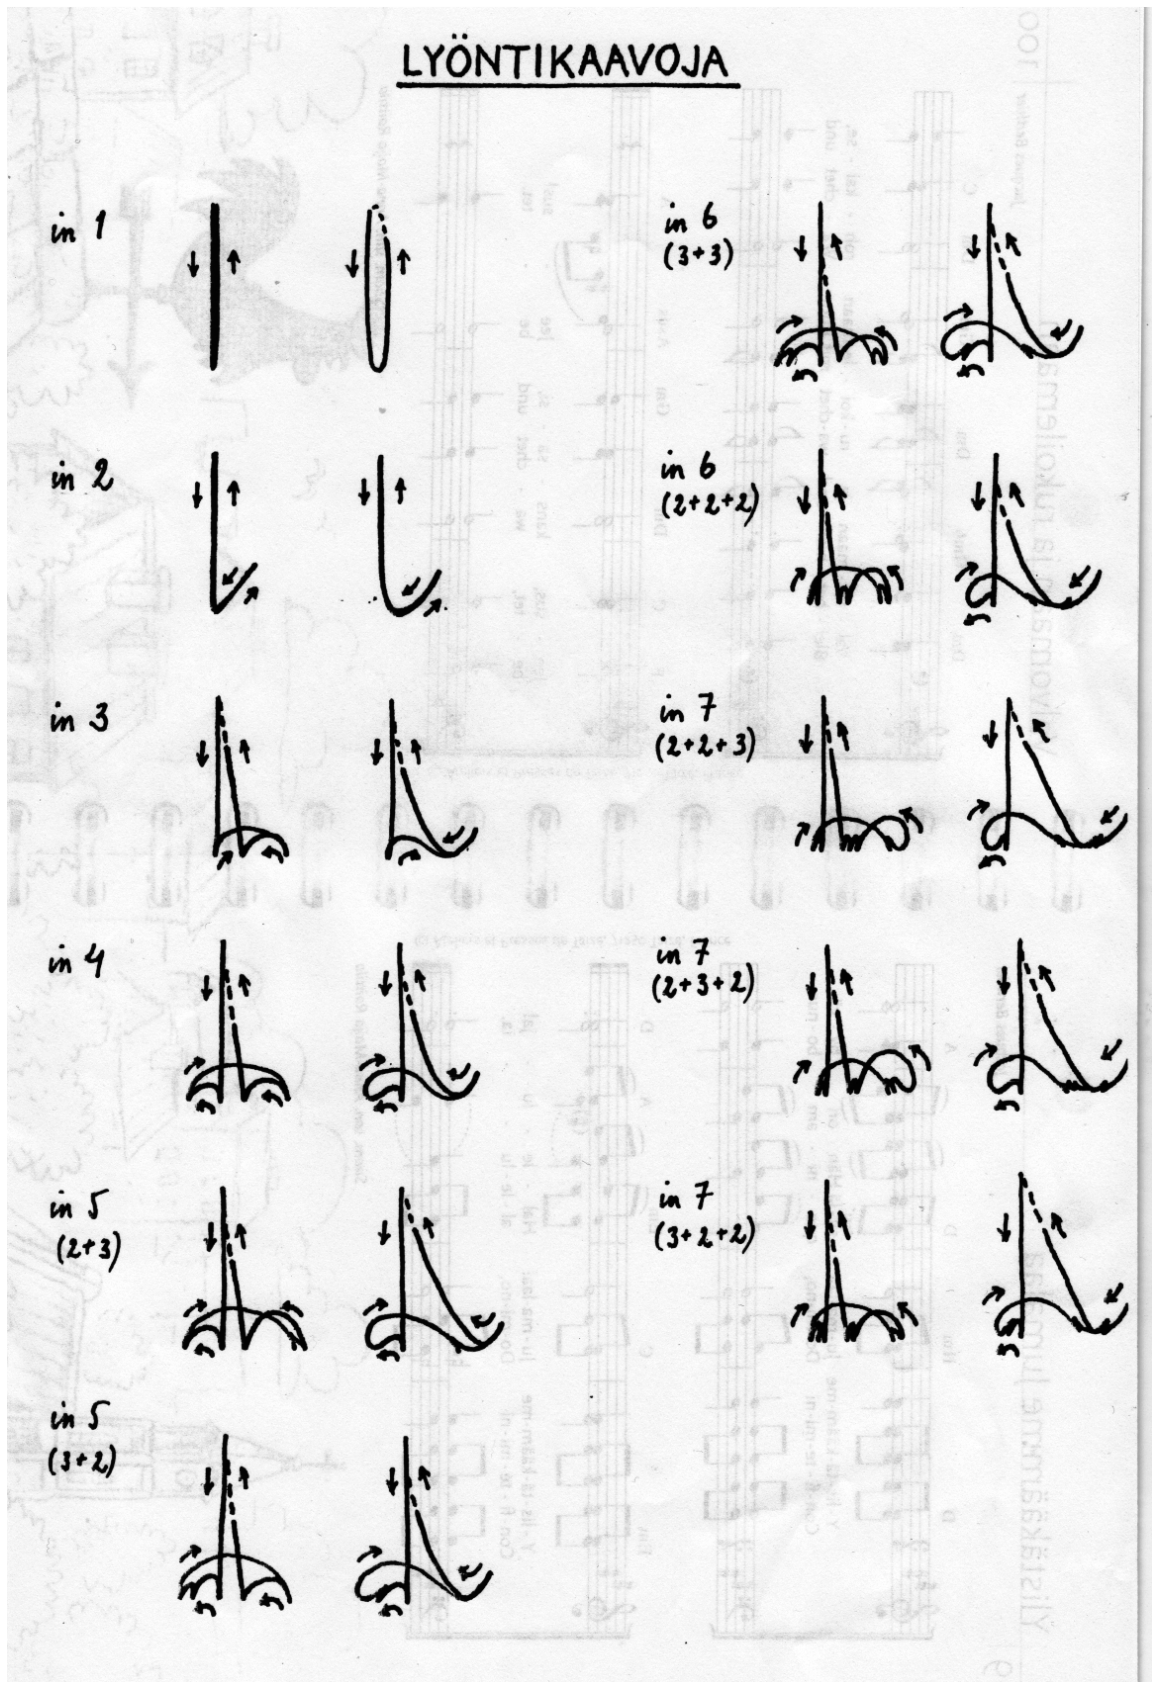 LYÖNTIKAAVOJA
in 1
in 2
in 3
in 4
in 5
(2+3)
in 5
(3+2)
in 6
(3+3)
in 6
(2+2+2)
in 7
(2+2+3)
in 7
(2+3+2)
in 7
(3+2+2)